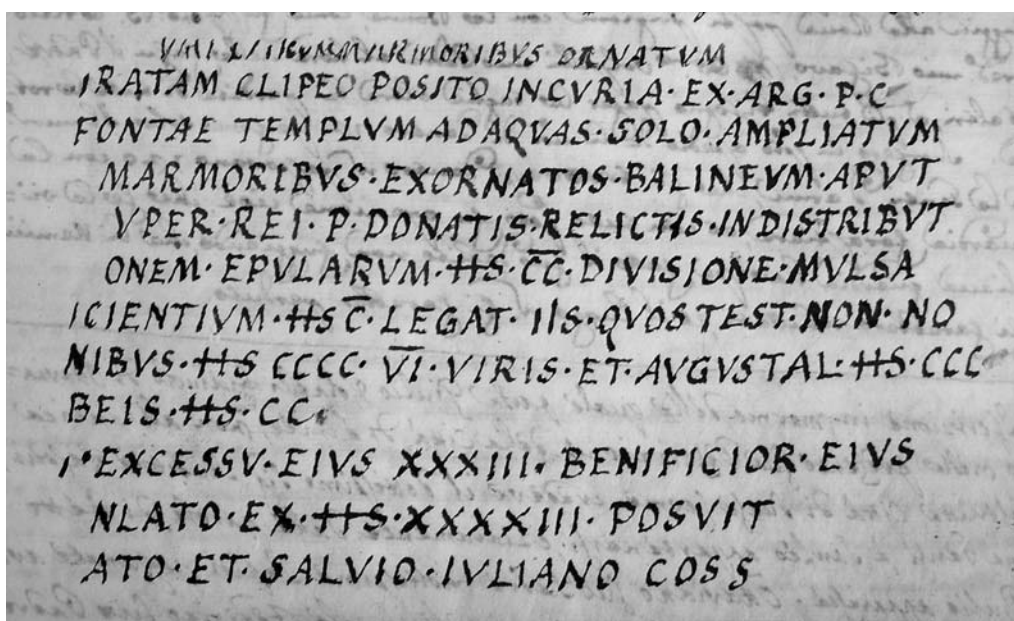 MARMORIBVS ORNATVM
IRATAM CLIPEO POSITO INCVRIA · EX · ARG · P · C
FONTAE TEMPLVM ADAQVAS · SOLO · AMPLIATVM
MARMORIBVS · EXORNATOS · BALINEVM · APVT
VPER · REI · P · DONATIS · RELICTIS · INDISTRIBVT
ONEM · EPVLARVM · HS · C̅C̅ · DIVISIONE · MVLSA
ICIENTIVM · HS C̅ · LEGAT · IIS · QVOS TEST · NON · NO
NIBVS · HS CCCC · V̅I̅ · VIRIS · ET · AVGVSTAL · HS · CCC
BEIS · HS · CC ·
EXCESSV · EIVS XXXIII · BENIFICIOR · EIVS
NLATO · EX · HS · XXXXIII · POSVIT
ATO · ET · SALVIO · IVLIANO COSS